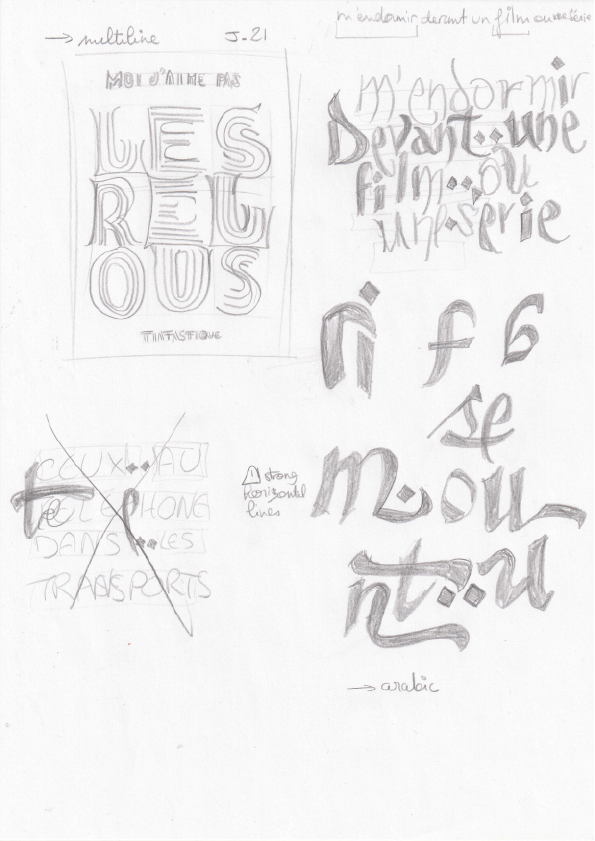 → multiline
J-21
MOI J'AIME PAS
LES
REL
OUS
TINTASTIQUE
m'endormir devant un film ou une série
m'endormir
Devant une
film ou
une serie
n i f 6
se
m ou
nt u
→ arabic
CEUX AU
TELEPHONE
DANS LES
TRANSPORTS
⚠ strong
horizontal
lines